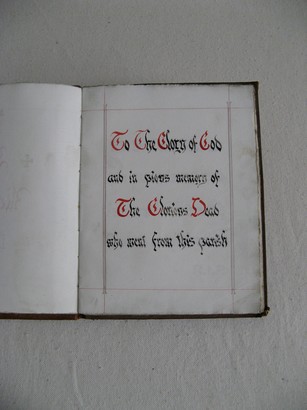 To The Glory of God
and in pious memory of
The Glorious Dead
who went from this parish